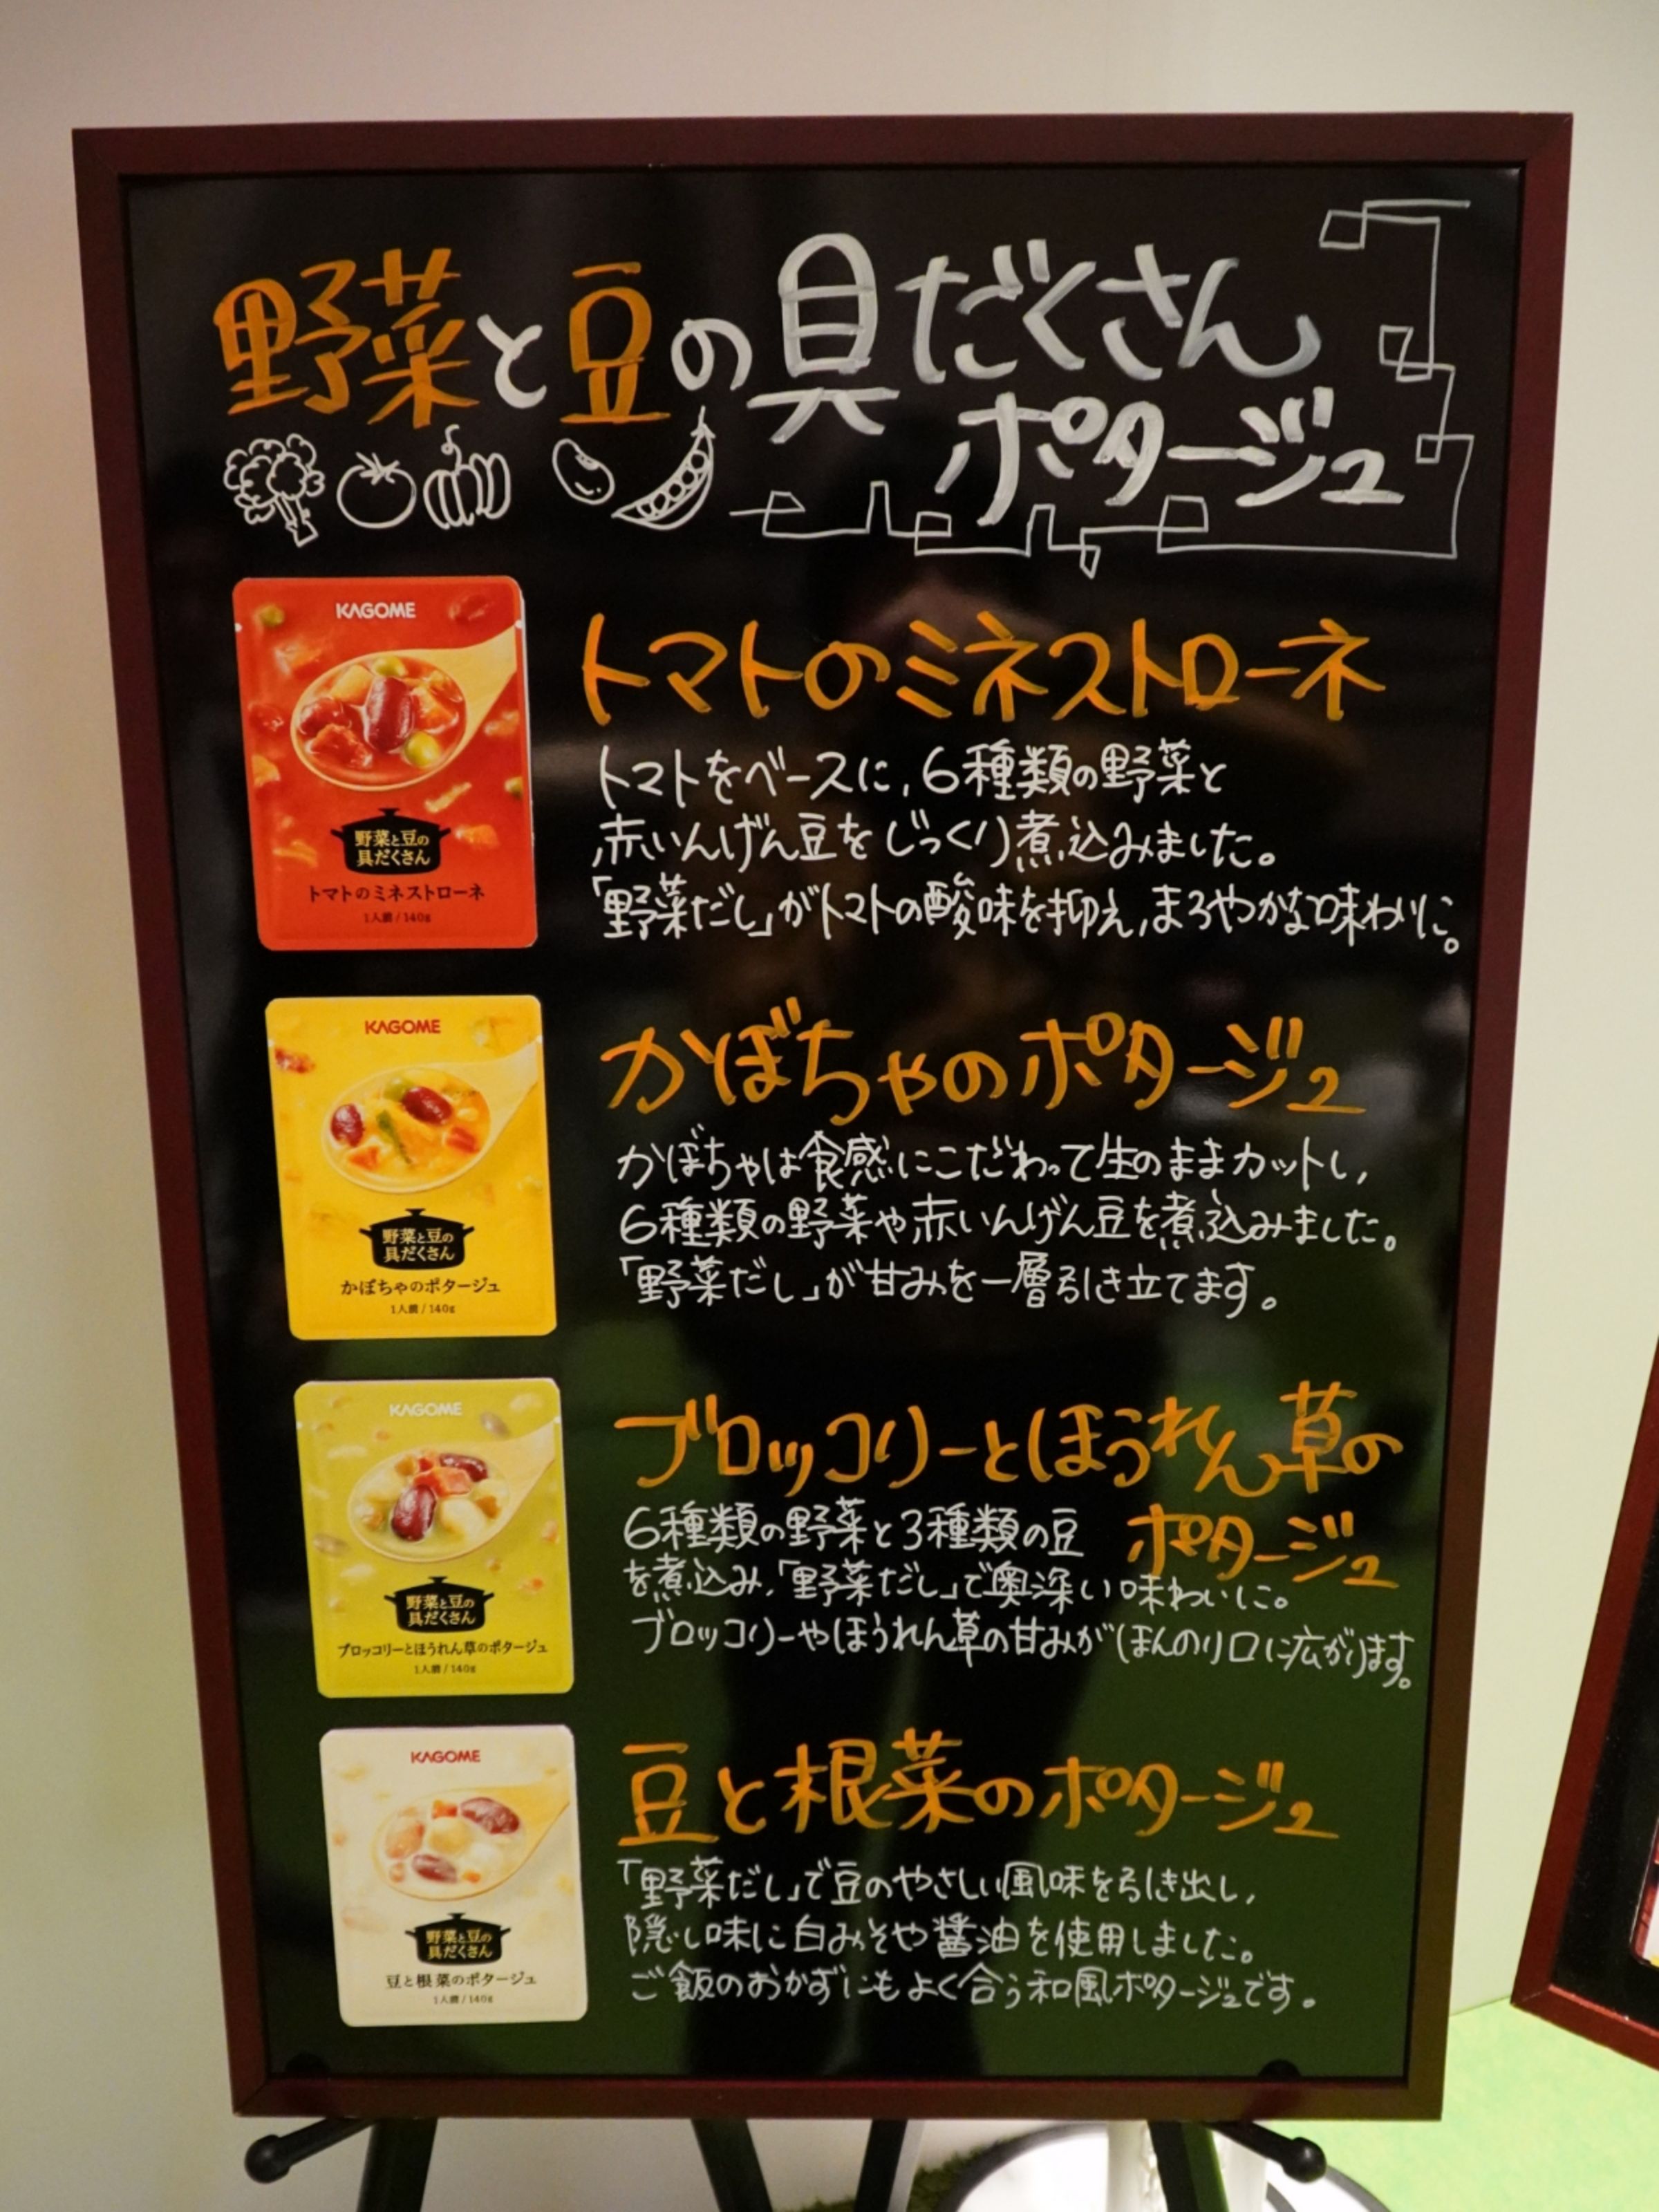 野菜と豆の具だくさん
ポタージュ
KAGOME
野菜と豆の
具だくさん
トマトのミネストローネ
1人前/140g
トマトのミネストローネ
トマトをベースに,6種類の野菜と
赤いんげん豆をじっくり煮込みました。
「野菜だし」がトマトの酸味を抑え,まろやかな味わいに。
KAGOME
野菜と豆の
具だくさん
かぼちゃのポタージュ
1人前/140g
かぼちゃのポタージュ
かぼちゃは食感にこだわって生のままカットし,
6種類の野菜や赤いんげん豆を煮込みました。
「野菜だし」が甘みを一層引き立てます。
KAGOME
野菜と豆の
具だくさん
ブロッコリーとほうれん草のポタージュ
1人前/140g
ブロッコリーとほうれん草の
ポタージュ
6種類の野菜と3種類の豆
を煮込み,「野菜だし」で奥深い味わいに。
ブロッコリーやほうれん草の甘みがほんのり口に広がります。
KAGOME
野菜と豆の
具だくさん
豆と根菜のポタージュ
1人前/140g
豆と根菜のポタージュ
「野菜だし」で豆のやさしい風味を引き出し,
隠し味に白みそや醤油を使用しました。
ご飯のおかずにもよく合う和風ポタージュです。